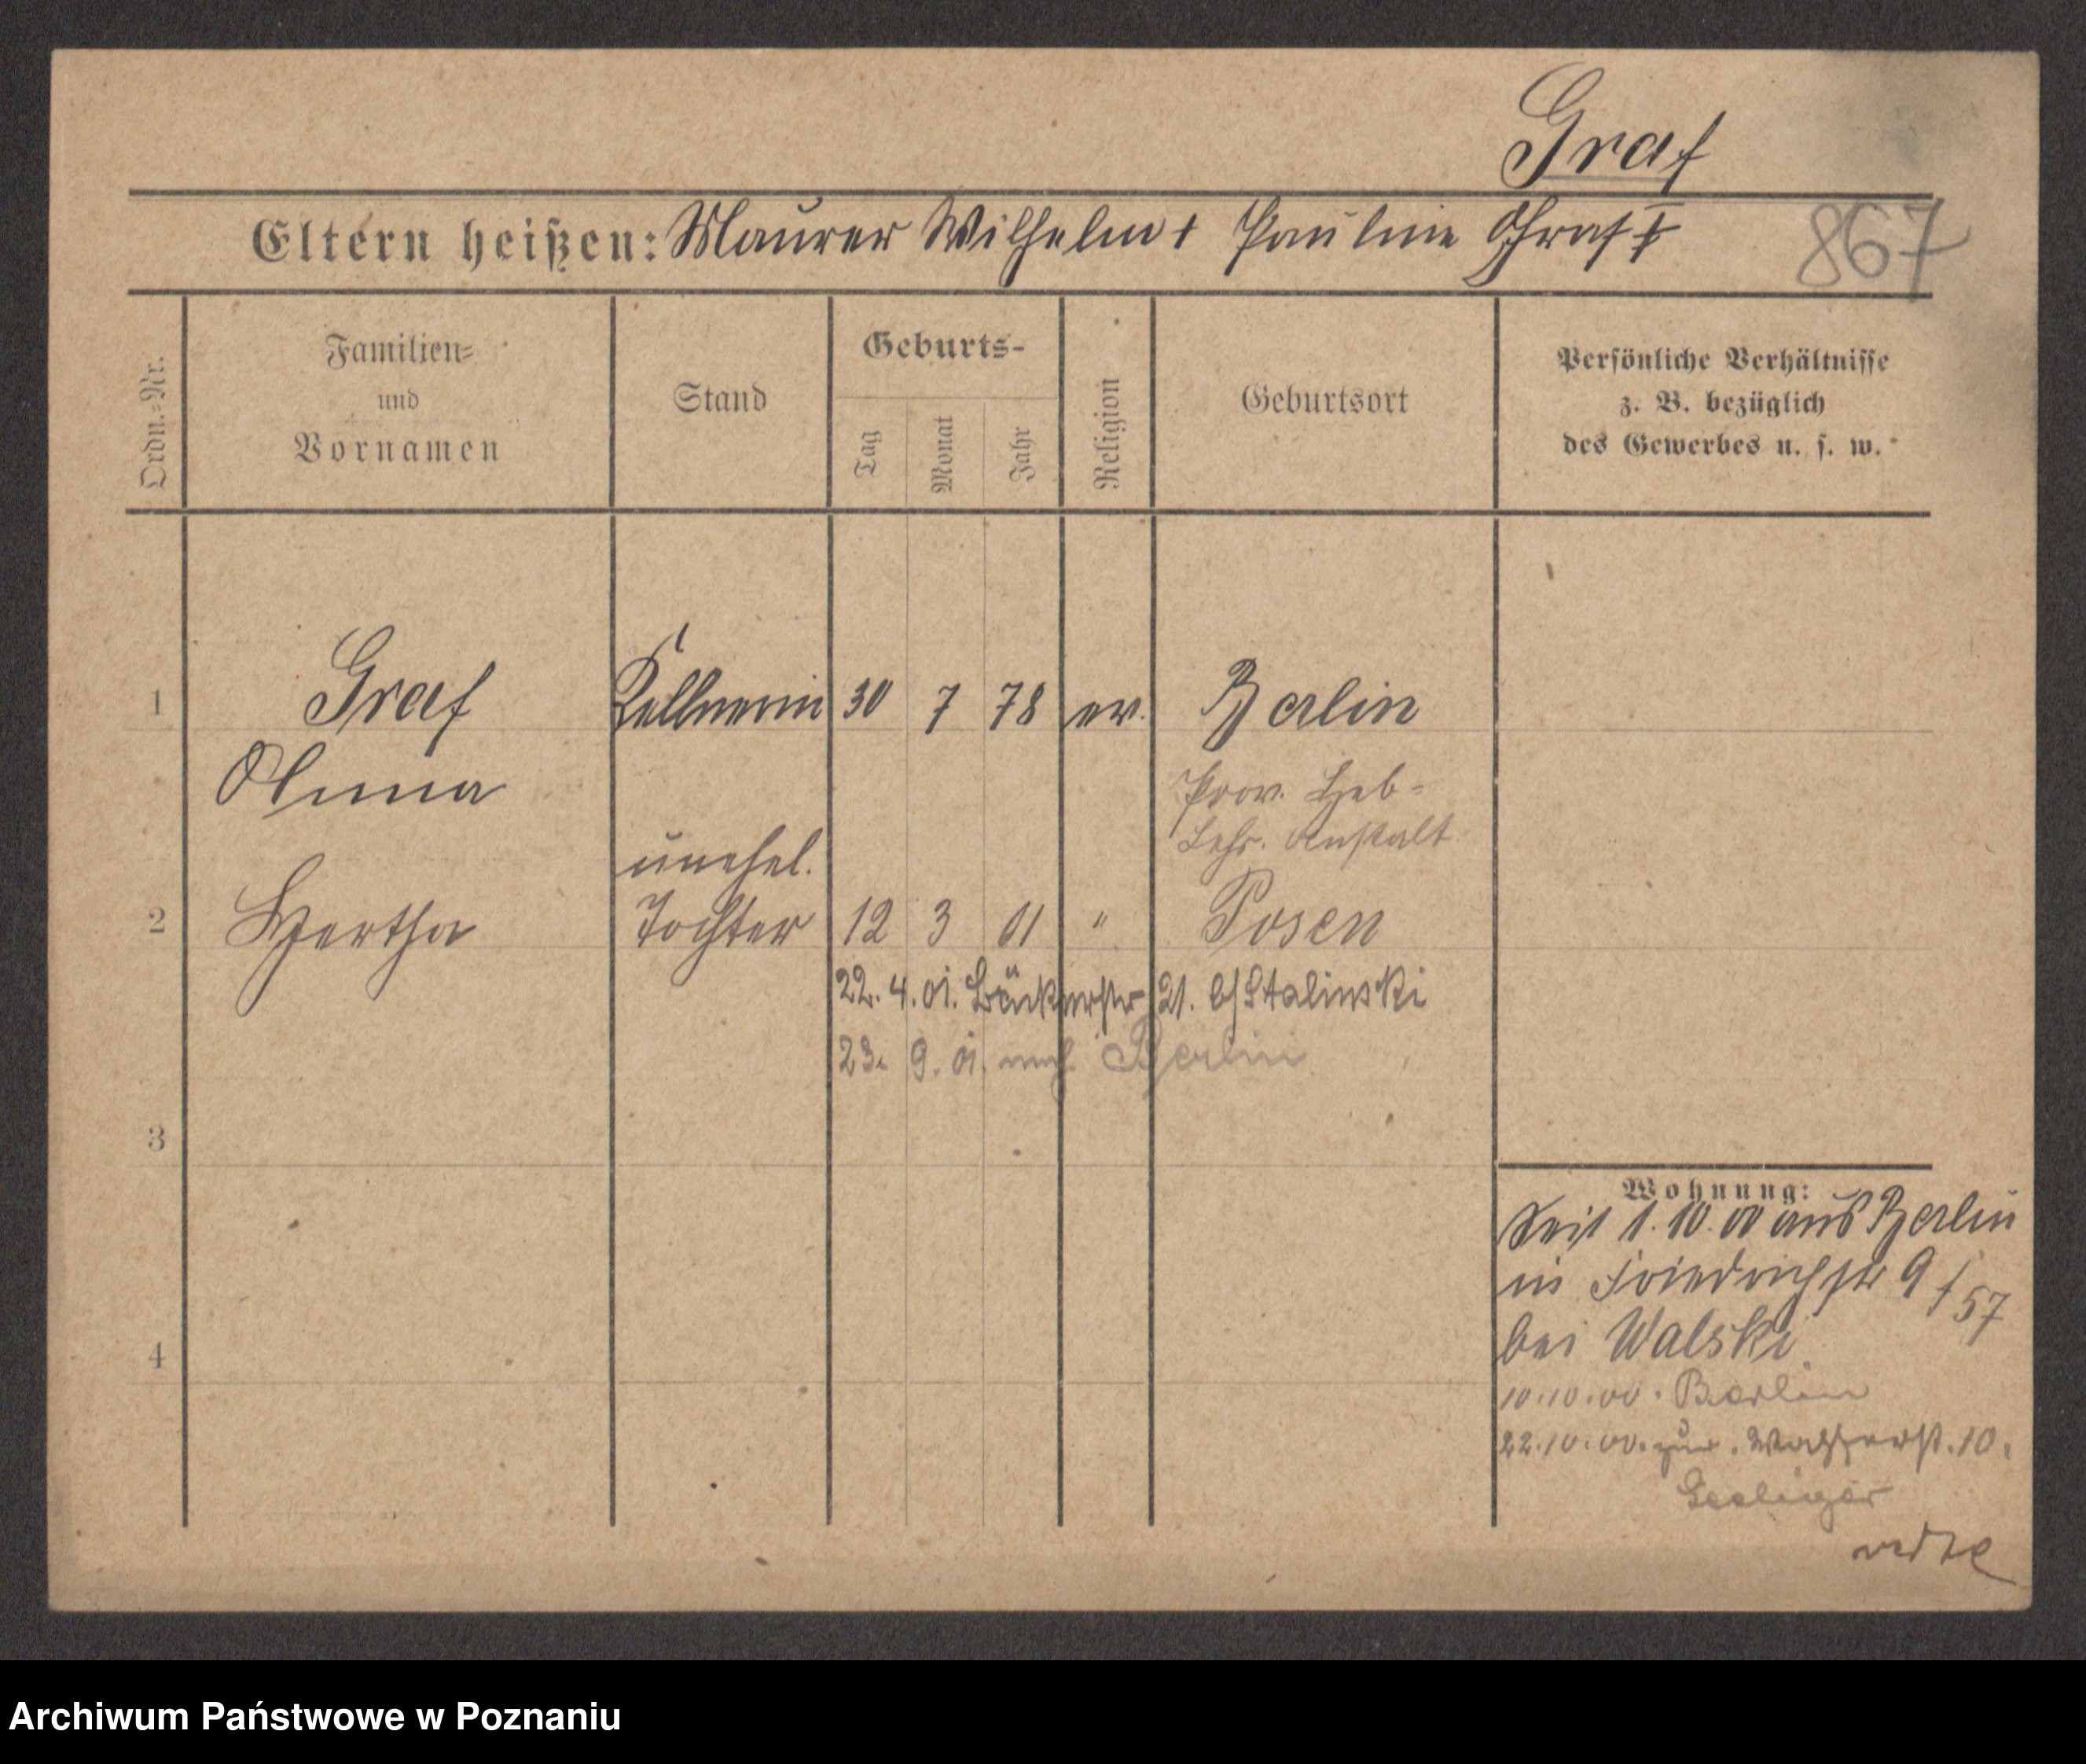 Graf
Eltern heißen: Maurer Wilhelm + Pauline Graf
867
Ordn.-Nr.
Familien-
und
Vornamen
Stand
Geburts-
Tag
Monat
Jahr
Religion
Geburtsort
Persönliche Verhältnisse
z. B. bezüglich
des Gewerbes u. s. w.
1 Graf Kellnerin 30 7 78 ev. Berlin
Anna
Prov. Heb-
Lehr. Anstalt
unehel.
2 Hertha Tochter 12 3 01 " Posen
22. 4. 01. Bäckerstr 21. b/ Stalinski
23. 9. 01. nach Berlin
3
4
Wohnung:
Seit 1. 10. 00 aus Berlin
in Friedrichstr 9 / 57
bei Walski
10. 10. 00. Berlin
22. 10. 00. zur. Wasserst. 10.
Seeliger
Archiwum Państwowe w Poznaniu